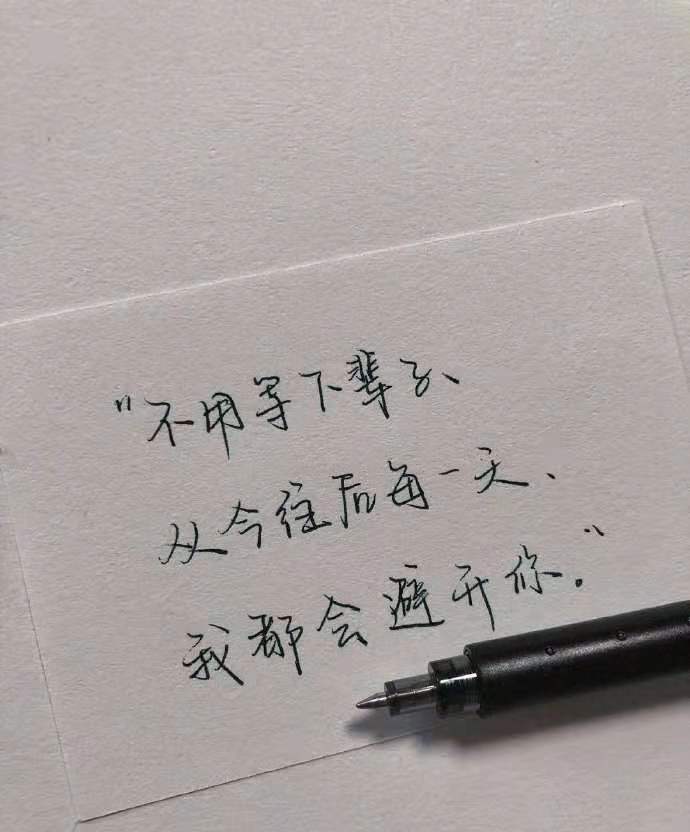 "不用等下辈子、
从今往后每一天、
我都会避开你。"